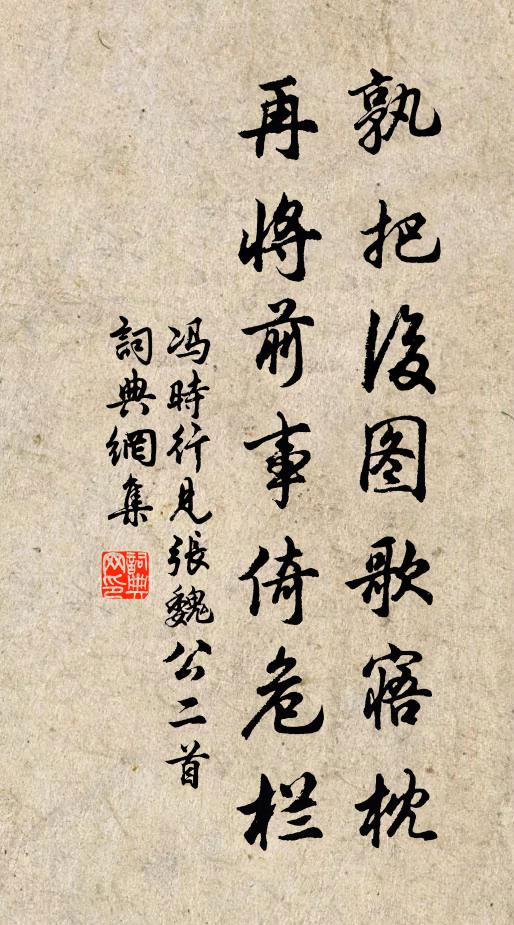 孰把後图歌寤枕
再将前事倚危栏
冯時行見張魏公二首
詞典網集
詞典网印